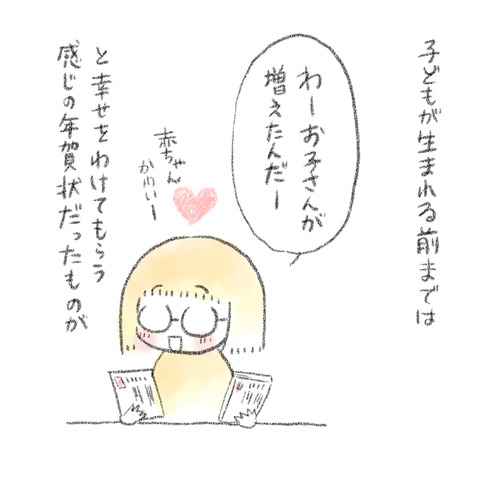 子どもが生まれる前までは
わーお子さんが
増えたんだー
赤ちゃん
かわいー
と幸せをわけてもらう
感じの年賀状だったものが